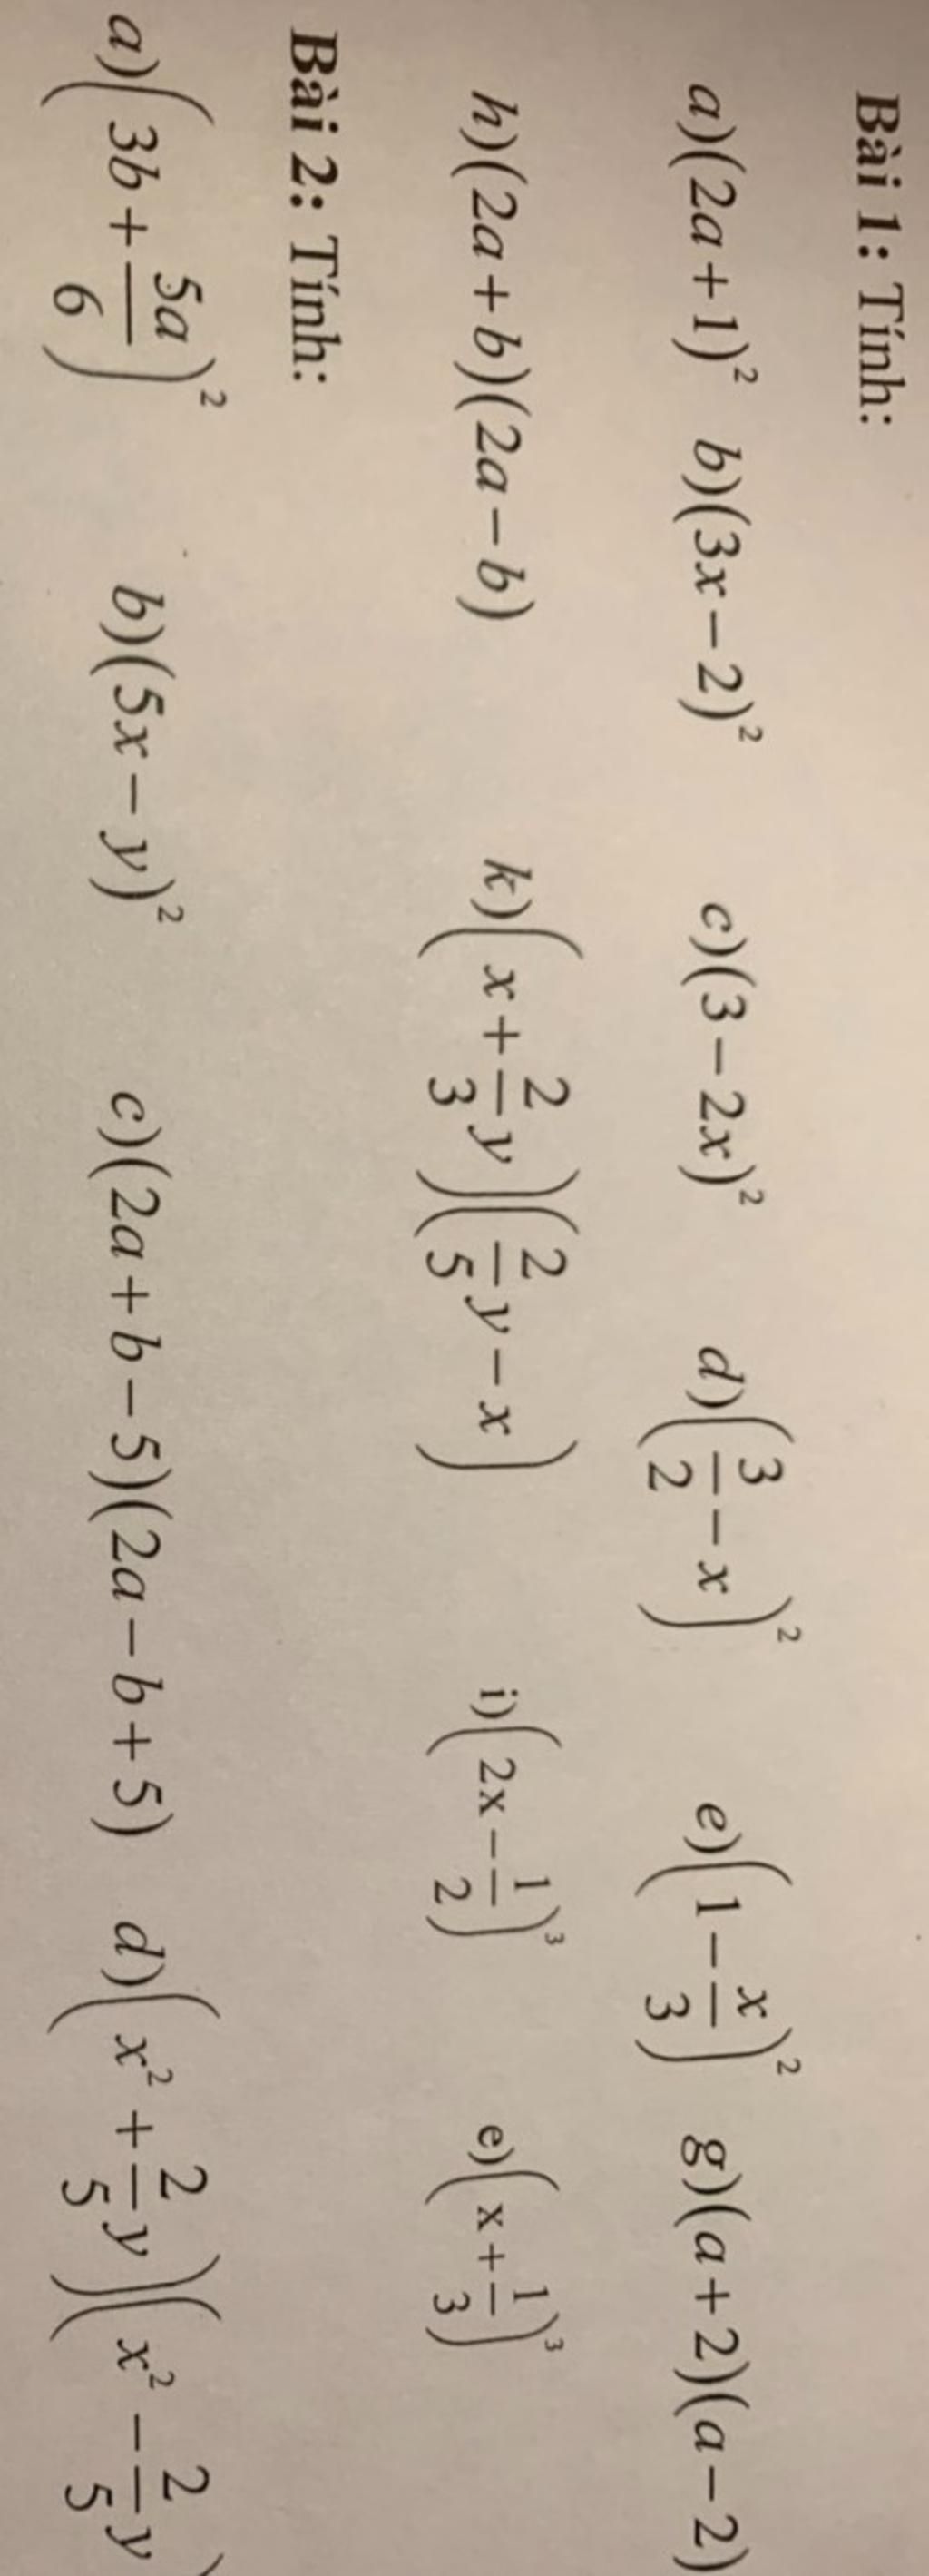 Bài 1: Tính:
a)(2a+1)² b)(3x−2)² c)(3−2x)² d)(3/2−x)² e)(1−x/3)² g)(a+2)(a−2)
h)(2a+b)(2a−b) k)(x+2/3y)(2/5y−x) i)(2x−1/2)³ e)(x+1/3)³
Bài 2: Tính:
a)(3b+5a/6)² b)(5x−y)² c)(2a+b−5)(2a−b+5) d)(x²+2/5y)(x²−2/5y)